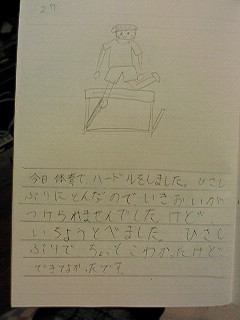 27
今日体育で、ハードルをしました。ひさし
ぶりにとんだので、いきおいが
つけられませんでした。けど、
いちようとべました。ひさし
ぶりで、ちょっとこわかったけど
できてよかったです。